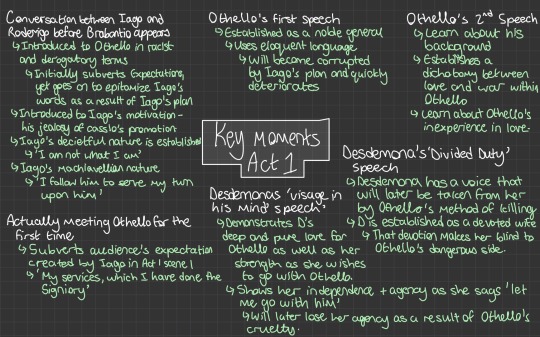 Conversation between Iago and
Roderigo before Brabantio appears
↳ Introduced to Othello in racist
and derogatory terms
↳ Initially subverts Expectations,
yet goes on to epitomize Iago's
words as a result of Iago's plan
↳ Introduced to Iago's motivation -
his jealousy of cassio's promotion
↳ Iago's decietful nature is established
↳ 'I am not what I am'
↳ Iago's machiavellian nature
↳ 'I follow him to serve my turn
upon him'
Actually meeting Othello for the
first time
↳ Subverts audience's expectation
created by Iago in Act 1 scene 1
↳ 'My services, which I have done the
Signiory'
Othello's first speech
↳ Established as a noble general
↳ Uses eloquent language
↳ Will become corrupted
by Iago's plan and quickly
deteriorates
Key Moments
Act 1
Desdemonas 'visage in
his mind' speech'
↳ Demonstrates D's
deep and pure love for
Othello as well as her
strength as she wishes
to go with Othello.
↳ Shows her independence + agency as she says 'let
me go with him'
↳ Will later lose her agency as a result of Othello's
cruelty.
Othello's 2nd Speech
↳ Learn about his
background
↳ Establishes a
dichotomy between
love and war within
Othello
↳ Learn about Othello's
inexperience in love.
Desdemona's 'Divided Duty'
speech
↳ Desdemona has a voice that
will later be taken from her
by Othello's method of killing
↳ D is established as a devoted wife
↳ That devotion makes her blind to
Othello's dangerous side.